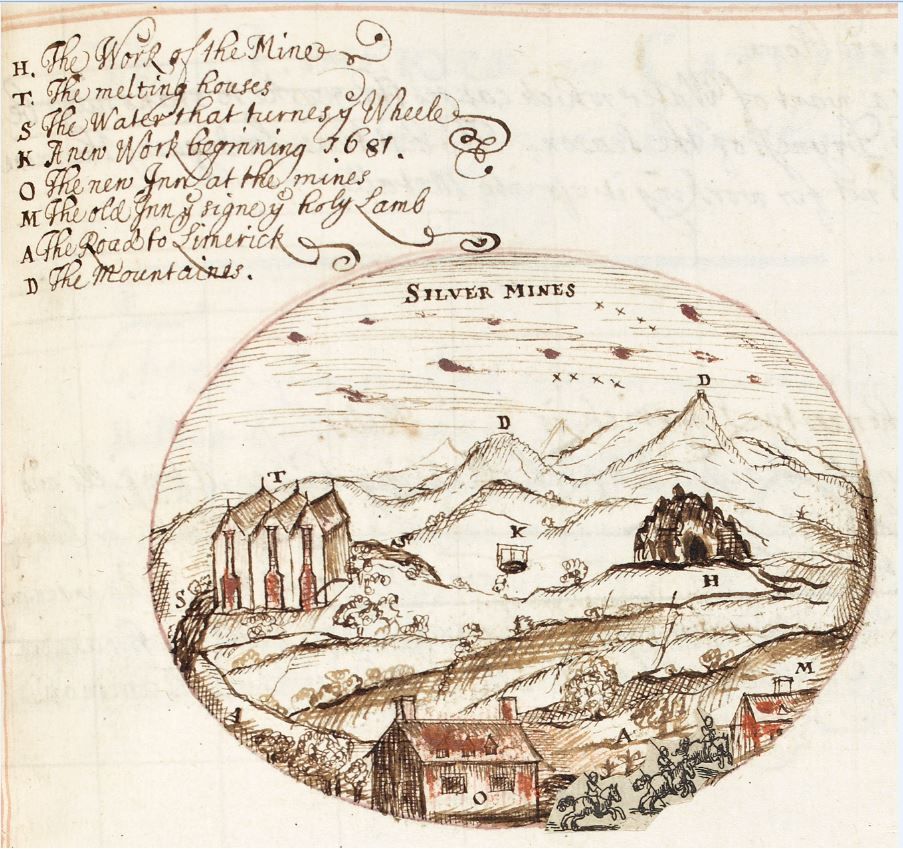 H. The Work of the Mine
T. The melting houses
S The Water that turnes ẙ Wheele
K A new Work beginning 1681.
O The new Inn at the mines
M The old Inn ẙ signe ẙ holy Lamb
A The Road to Limerick
D The Mountaines.
SILVER MINES
D
D
T
K
H
S
M
A
A
O